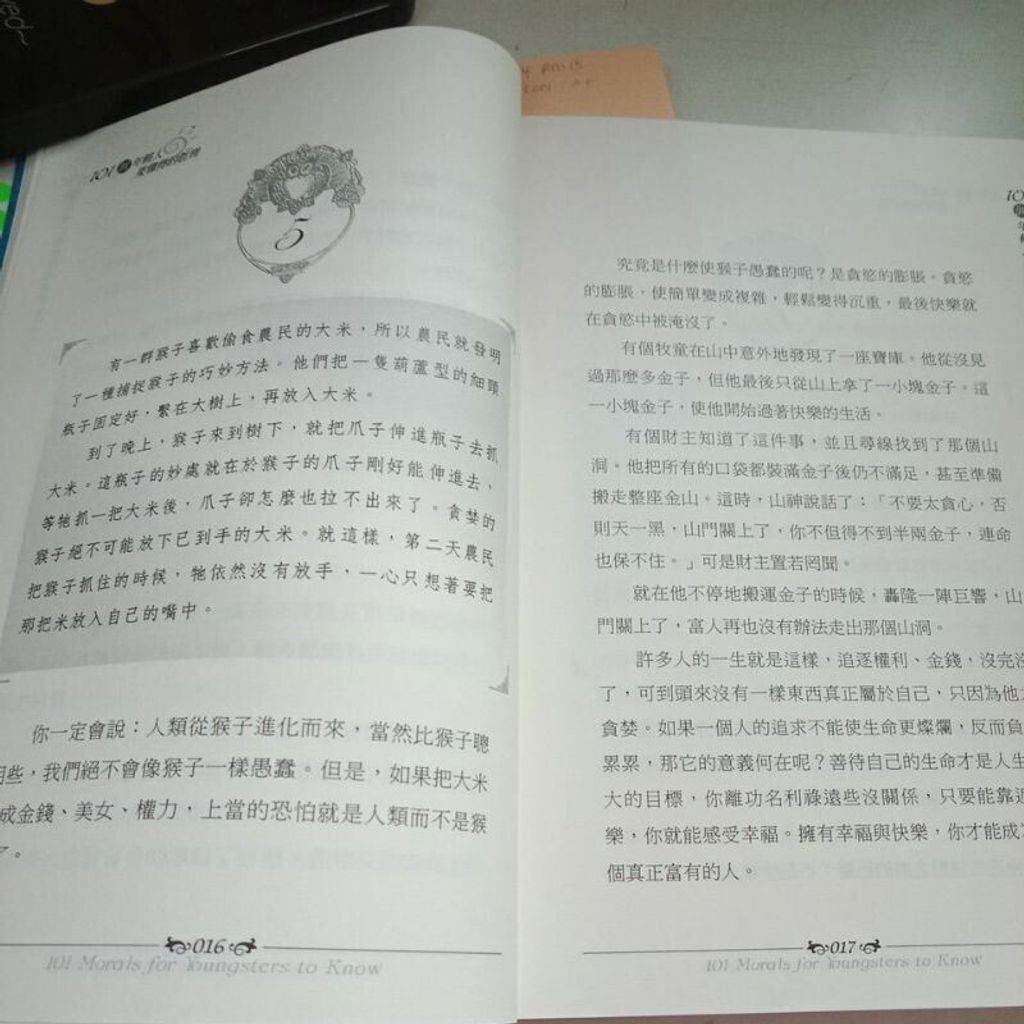 101個年輕人
要懂得的哲理
5
有一群猴子喜歡偷食農民的大米,所以農民就發明
了一種捕捉猴子的巧妙方法。他們把一隻葫蘆型的細頸
瓶子固定好,繫在大樹上,再放入大米。
到了晚上,猴子來到樹下,就把爪子伸進瓶子去抓
大米。這瓶子的妙處就在於猴子的爪子剛好能伸進去,
等牠抓一把大米後,爪子卻怎麼也拉不出來了。貪婪的
猴子絕不可能放下已到手的大米。就這樣,第二天農民
把猴子抓住的時候,牠依然沒有放手,一心只想著要把
那把米放入自己的嘴中。
你一定會說:人類從猴子進化而來,當然比猴子聰
些,我們絕不會像猴子一樣愚蠢。但是,如果把大米
成金錢、美女、權力,上當的恐怕就是人類而不是猴
了。
016
101 Morals for Youngsters to Know
究竟是什麼使猴子愚蠢的呢?是貪慾的膨脹。貪慾
的膨脹,使簡單變成複雜,輕鬆變得沉重,最後快樂就
在貪慾中被淹沒了。
有個牧童在山中意外地發現了一座寶庫。他從沒見
過那麼多金子,但他最後只從山上拿了一小塊金子。這
一小塊金子,使他開始過著快樂的生活。
有個財主知道了這件事,並且尋線找到了那個山
洞。他把所有的口袋都裝滿金子後仍不滿足,甚至準備
搬走整座金山。這時,山神說話了:「不要太貪心,否
則天一黑,山門關上了,你不但得不到半兩金子,連命
也保不住。」可是財主置若罔聞。
就在他不停地搬運金子的時候,轟隆一陣巨響,山
門關上了,富人再也沒有辦法走出那個山洞。
許多人的一生就是這樣,追逐權利、金錢,沒完沒
了,可到頭來沒有一樣東西真正屬於自己,只因為他
貪婪。如果一個人的追求不能使生命更燦爛,反而負
累累,那它的意義何在呢?善待自己的生命才是人生
大的目標,你離功名利祿遠些沒關係,只要能靠近
樂,你就能感受幸福。擁有幸福與快樂,你才能成
個真正富有的人。
017
101 Morals for Youngsters to Know